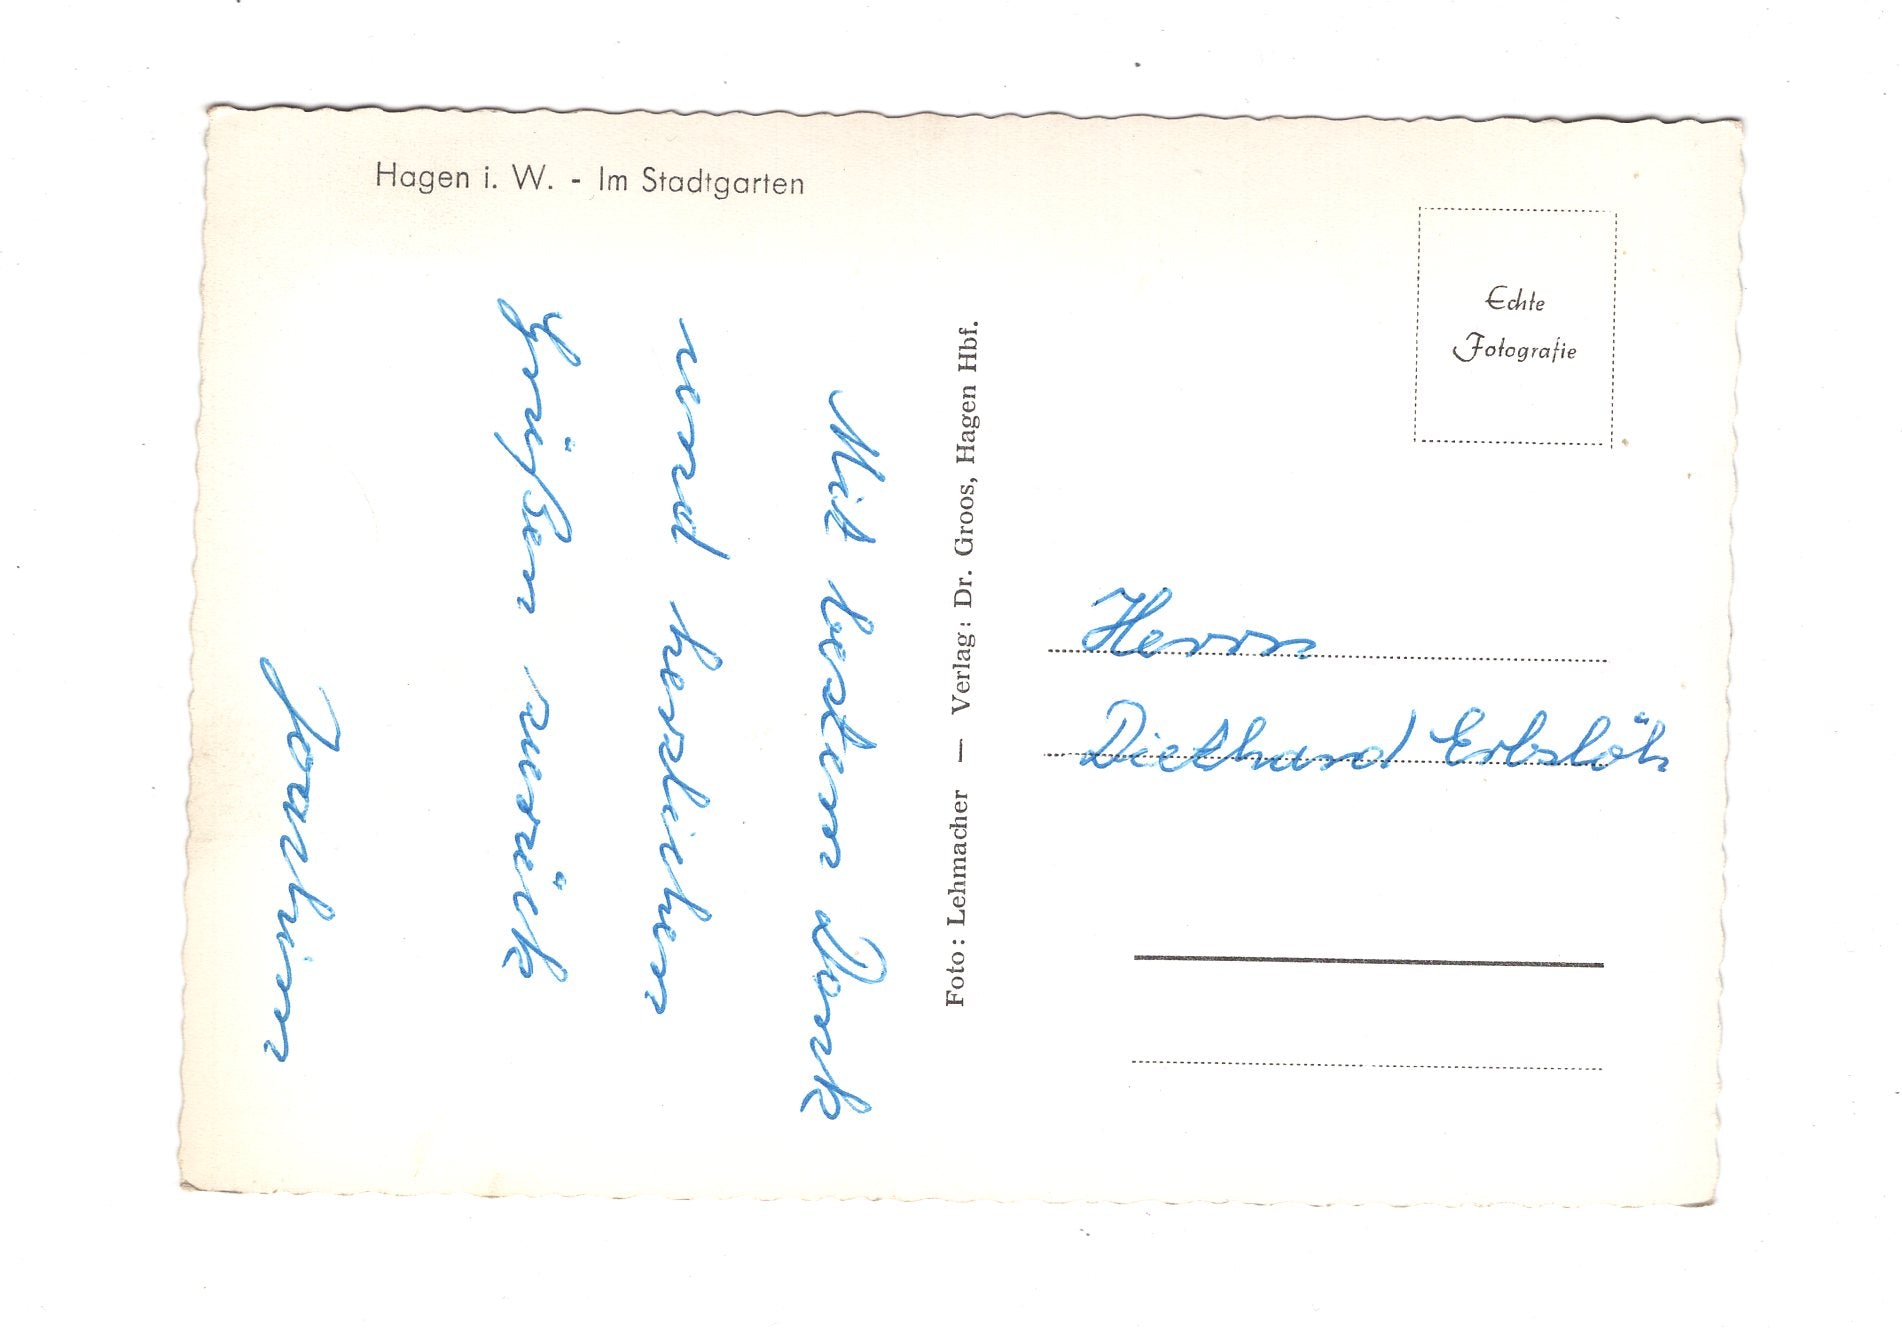 Hagen i. W. - Im Stadtgarten
Mit besten Dank
und herzlichen
Grüßen zurück
Joachim
Foto: Lehmacher — Verlag: Dr. Groos, Hagen Hbf.
Echte
Fotografie
Herrn
Diethard Erbslöh